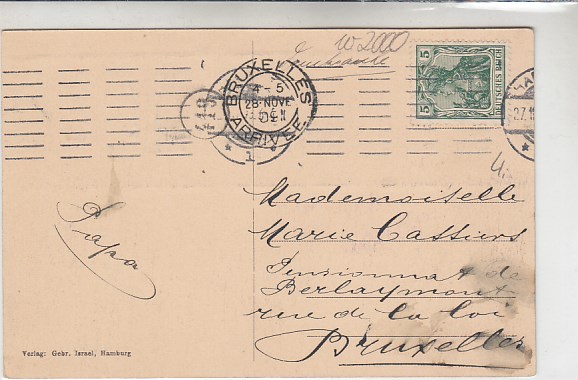 w 2000
Drucksache
5 5
DEUTSCHES REICH
BRUXELLES
4 - 5
28 NOVE
ARRIVEE
1
27.11
Mademoiselle
Marie Cassiers
Pensionnat de
Berlaymont
rue de la loi
Bruxelles
Papa
Verlag: Gebr. Israel, Hamburg